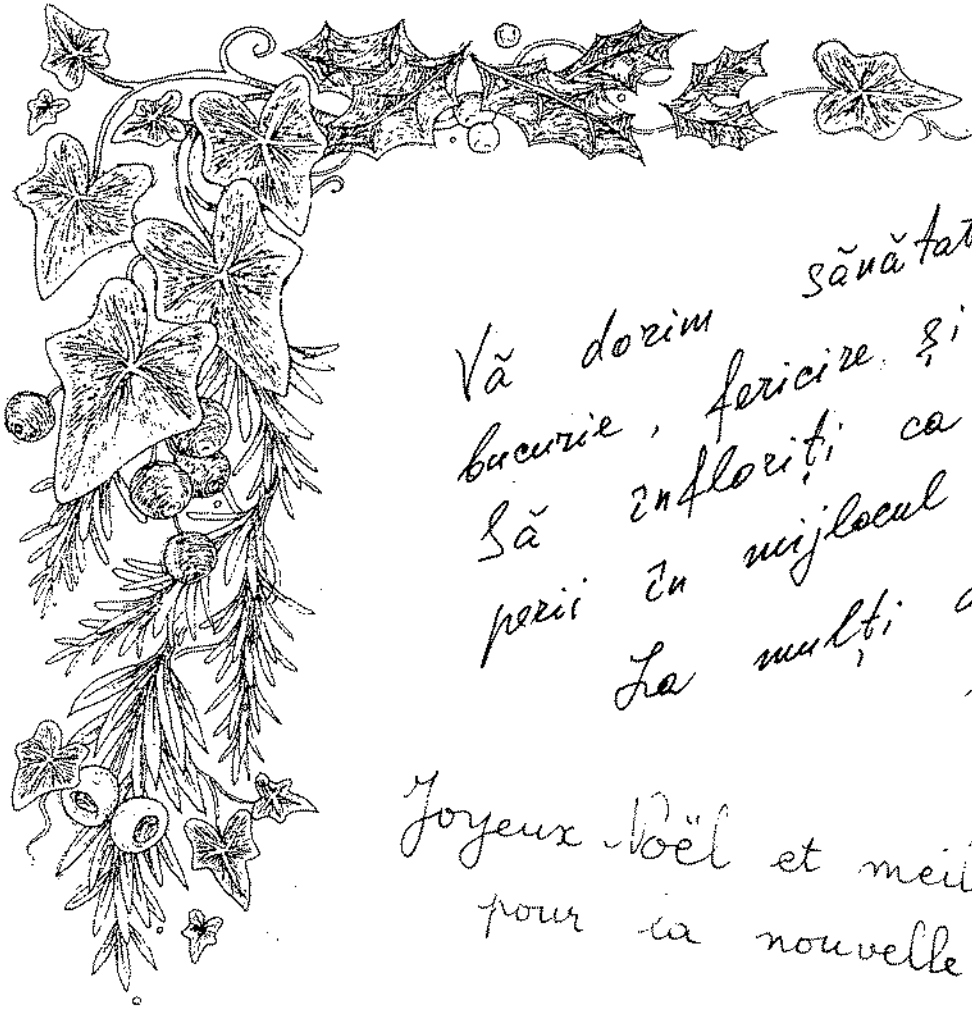 Vă dorim sănătat
bucurie, fericire și
Să înfloriți ca
perii în mijlocul
La mulți
Joyeux Noël et meil
pour la nouvelle